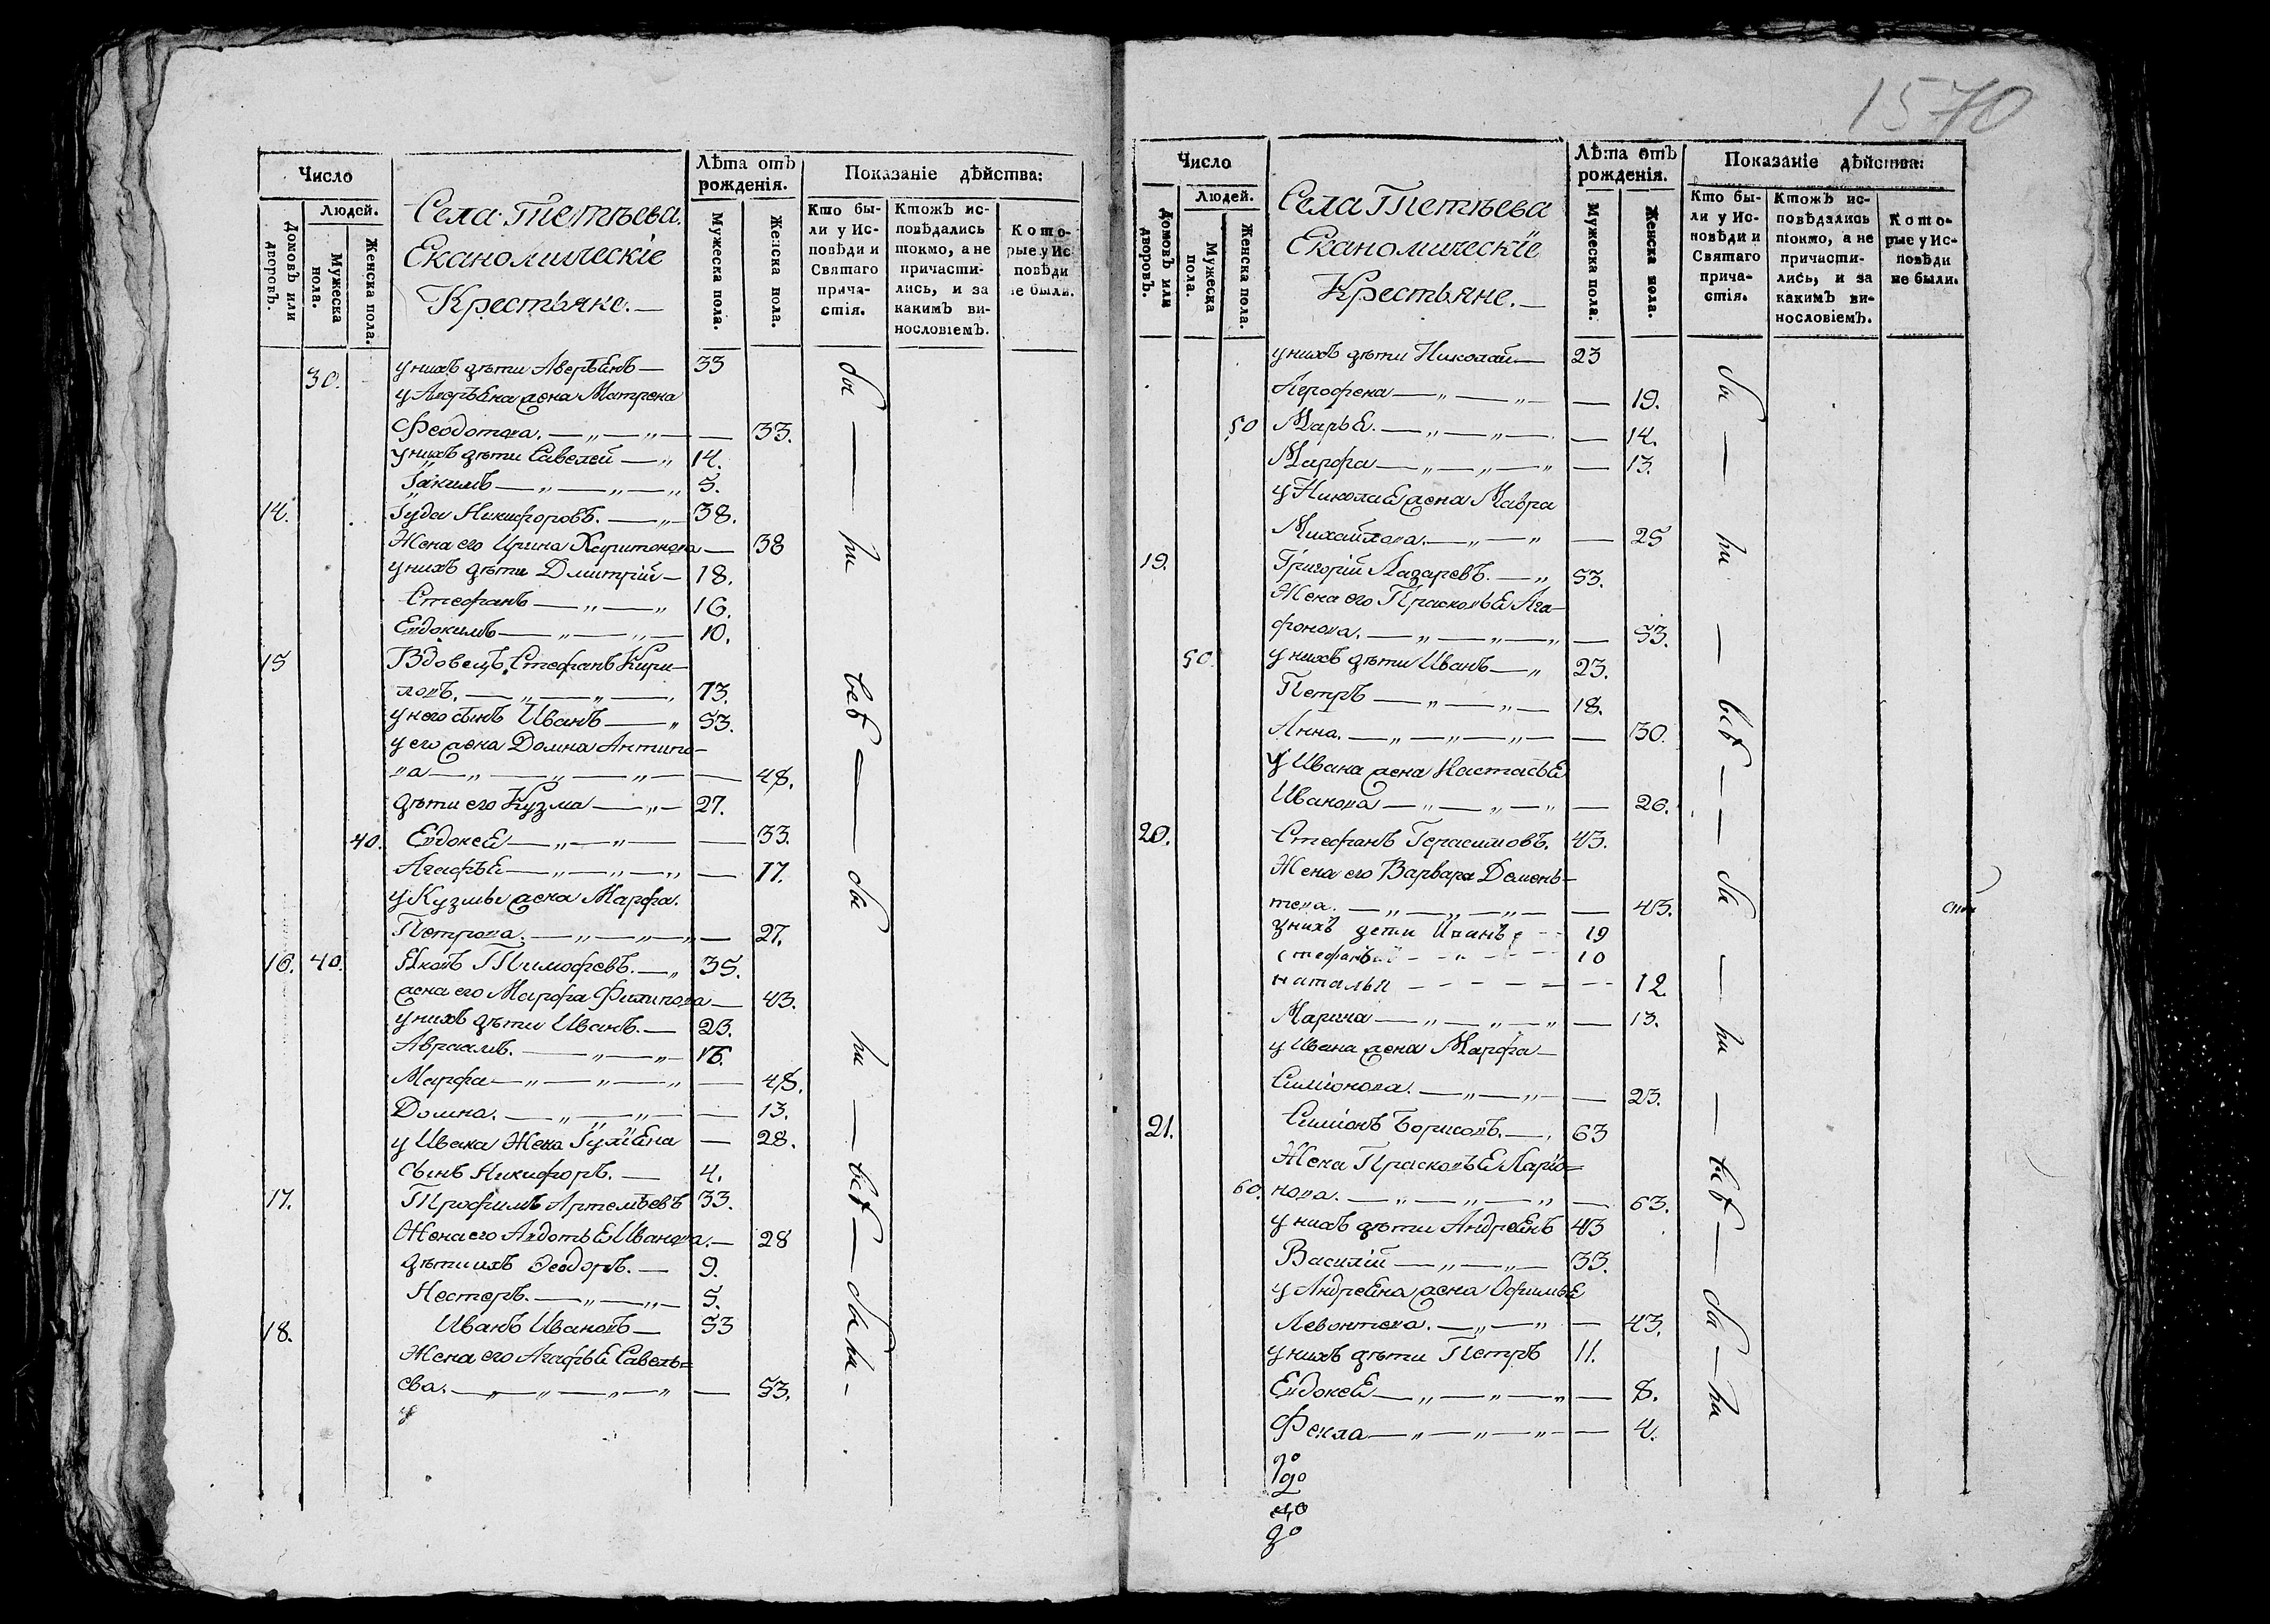 1570
Число
Людей.
Домовъ или дворовъ.
Мужеска пола.
Женска пола.
Села Тетѣева.
Еканомическіе
Крестьяне.—
Лѣта отъ рожденія.
Мужеска пола.
Женска пола.
Показаніе дѣйства:
Кто бы-
ли у Ис-
повѣди и
Святаго
прича-
стія.
Ктожъ ис-
повѣдались
токмо, а не
причасти-
лись, и за
какимъ ви-
нословіемъ.
Кото-
рые у Ис-
повѣди
не были.
30. у нихъ дѣти Аверѣянъ — 33
у Аверѣяна жена Матрена
Феодотова. — 33.
у нихъ дѣти Савелей — 14.
Іакимъ — 5.
14. Іуда Никифоровъ. — 38.
Жена его Ирина Харитонова — 38
у нихъ дѣти Дмитрій — 18.
Стефанъ — 16.
Евдокимъ — 10.
15 Вдовецъ Стефанъ Кири-
ловъ. — 73.
у него сынъ Иванъ — 53.
у его жена Домна Антипо-
ва — 48.
дѣти его Кузма — 27.
40. Евдокея — 33.
Агафья — 17.
у Кузмы жена Марфа.
Петрова. — 27.
16. 40. Яковъ Тимофевъ. — 35.
жена его Марфа Филипова — 43.
у нихъ дѣти Иванъ. — 23.
Авраамъ. — 16.
Марфа — 48.
Домна. — 13.
у Ивана Жена Іуліяна — 28.
сынъ Никифоръ. — 4.
17. Трофимъ Артемьевъ 33.
Жена его Авдотья Иванова. — 28
дѣти ихъ Ѳеодоръ. — 9.
Несторъ. — 5.
18. Иванъ Ивановъ — 53
Жена его Агафья Савель=
ева. — 53.
у
бы — ли — всѣ — бы — ли — всѣ — бы ли —
Число
Людей.
Домовъ или дворовъ.
Мужеска пола.
Женска пола.
Села Тетѣева
Еканомическіе
Крестьяне.—
Лѣта отъ рожденія.
Мужеска пола.
Женска пола.
Показаніе дѣйства:
Кто бы-
ли у Ис-
повѣди и
Святаго
прича-
стія.
Ктожъ ис-
повѣдались
токмо, а не
причасти-
лись, и за
какимъ ви-
нословіемъ.
Кото-
рые у Ис-
повѣди
не были.
у нихъ дѣти Николай — 23
Аерофена — 19.
50 Марья. — 14.
Марфа — 13.
у Николая жена Мавра
Михайлова. — 25
19. Григорій Лазаревъ. — 53.
Жена его Прасковья Ага-
фонова. — 53.
50 у нихъ дѣти Иванъ — 23.
Петръ — 18.
Анна. — 30.
У Ивана жена Настасья
Иванова — 26.
20. Стефанъ Герасимовъ. 43.
Жена его Варвара Демень-
тева. — 43.
унихъ дети Иванъ 19
стефанъ 10
наталья 12
Марина — 13.
у Ивана жена Марфа —
Симіонова. — 23.
21. Симіонъ Борисовъ. — 63
Жена Прасковья Ларіо=
60. нова. — 63.
у нихъ дѣти Андреянъ 43
Василій — 33.
у Андреяна жена Офимья
Левонтева. — 43.
у нихъ дѣти Петръ 11.
Евдокея — 8.
Фекла — 4.
бы — ли — всѣ — — бы — ли — всѣ — бы — ли